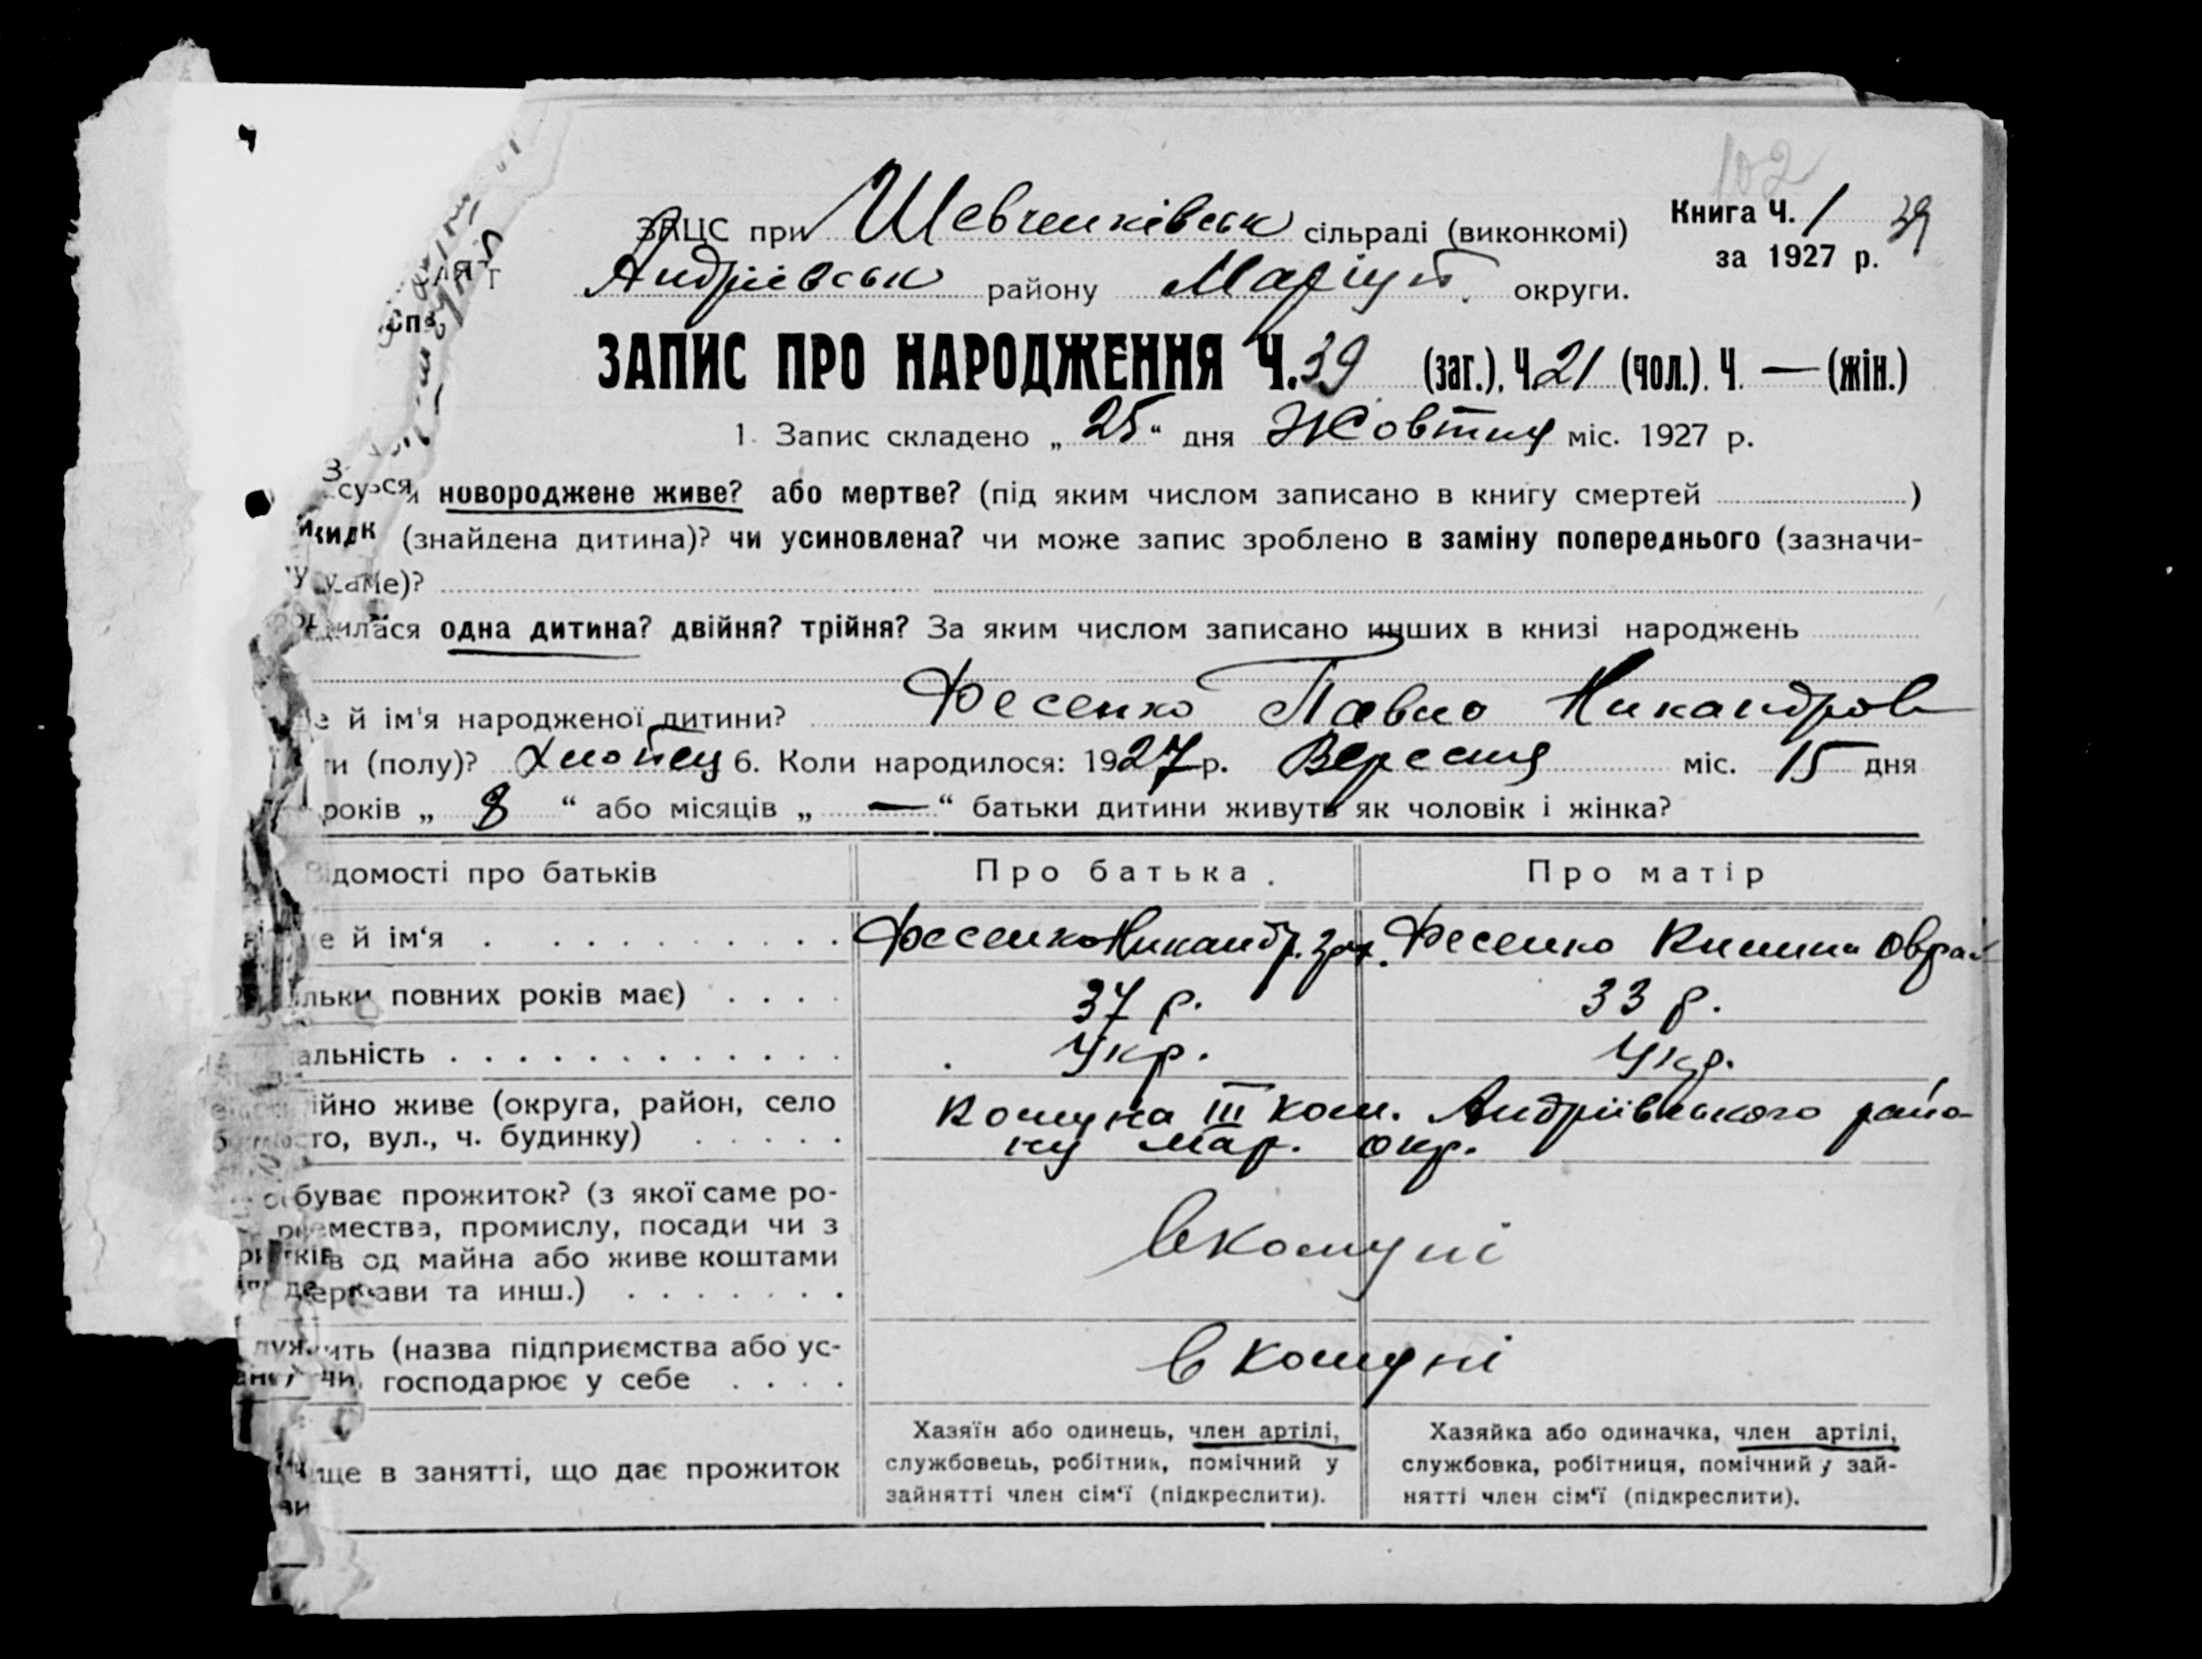 102
ЗАЦС при Шевченківськ сільраді (виконкомі) Книга Ч. 1 39
за 1927 р.
Андріївськ району Маріуп. округи.
ЗАПИС ПРО НАРОДЖЕННЯ Ч. 39 (заг.), Ч. 21 (чол.). Ч. — (жін.)
1. Запис складено „ 25 “ дня Жовтня міс. 1927 р.
новороджене живе? або мертве? (під яким числом записано в книгу смертей )
(знайдена дитина)? чи усиновлена? чи може запис зроблено в заміну попереднього (зазначи-
одна дитина? двійня? трійня? За яким числом записано инших в книзі народжень
й ім'я народженої дитини? Фесенко Павло Никандров
(полу)? Хлопець 6. Коли народилося: 1927 р. Вересня міс. 15 дня
років „ 8 “ або місяців „ — “ батьки дитини живуть як чоловік і жінка?
Відомості про батьків Про батька. Про матір
й ім‘я Фесенко Никандр. Фесенко
повних років має) 37 р. 33 р.
Укр. Укр.
живе (округа, район, село Комуна III Ком. Андріївського райо-
вул., ч. будинку) ну Мар. Окр.
прожиток? (з якої саме ро-
промислу, посади чи з
од майна або живе коштами в комуні
та инш.)
(назва підприємства або ус- в комуні
господарює у себе
Хазяїн або одинець, член артілі, Хазяйка або одиначка, член артілі,
в занятті, що дає прожиток службовець, робітник, помічний у службовка, робітниця, помічний у зай-
зайнятті член сім‘ї (підкреслити). нятті член сім‘ї (підкреслити).